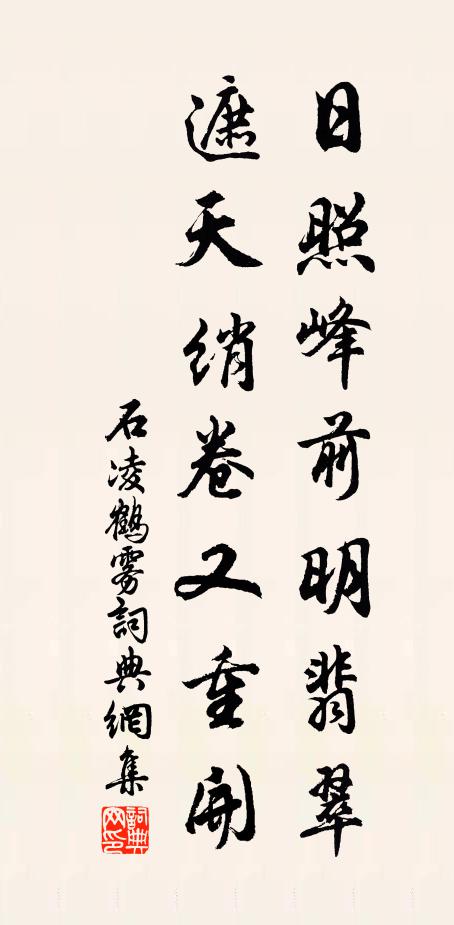 日照峰前明翡翠
遮天绡卷又重開
石凌鶴雾詞典網集
詞典網印